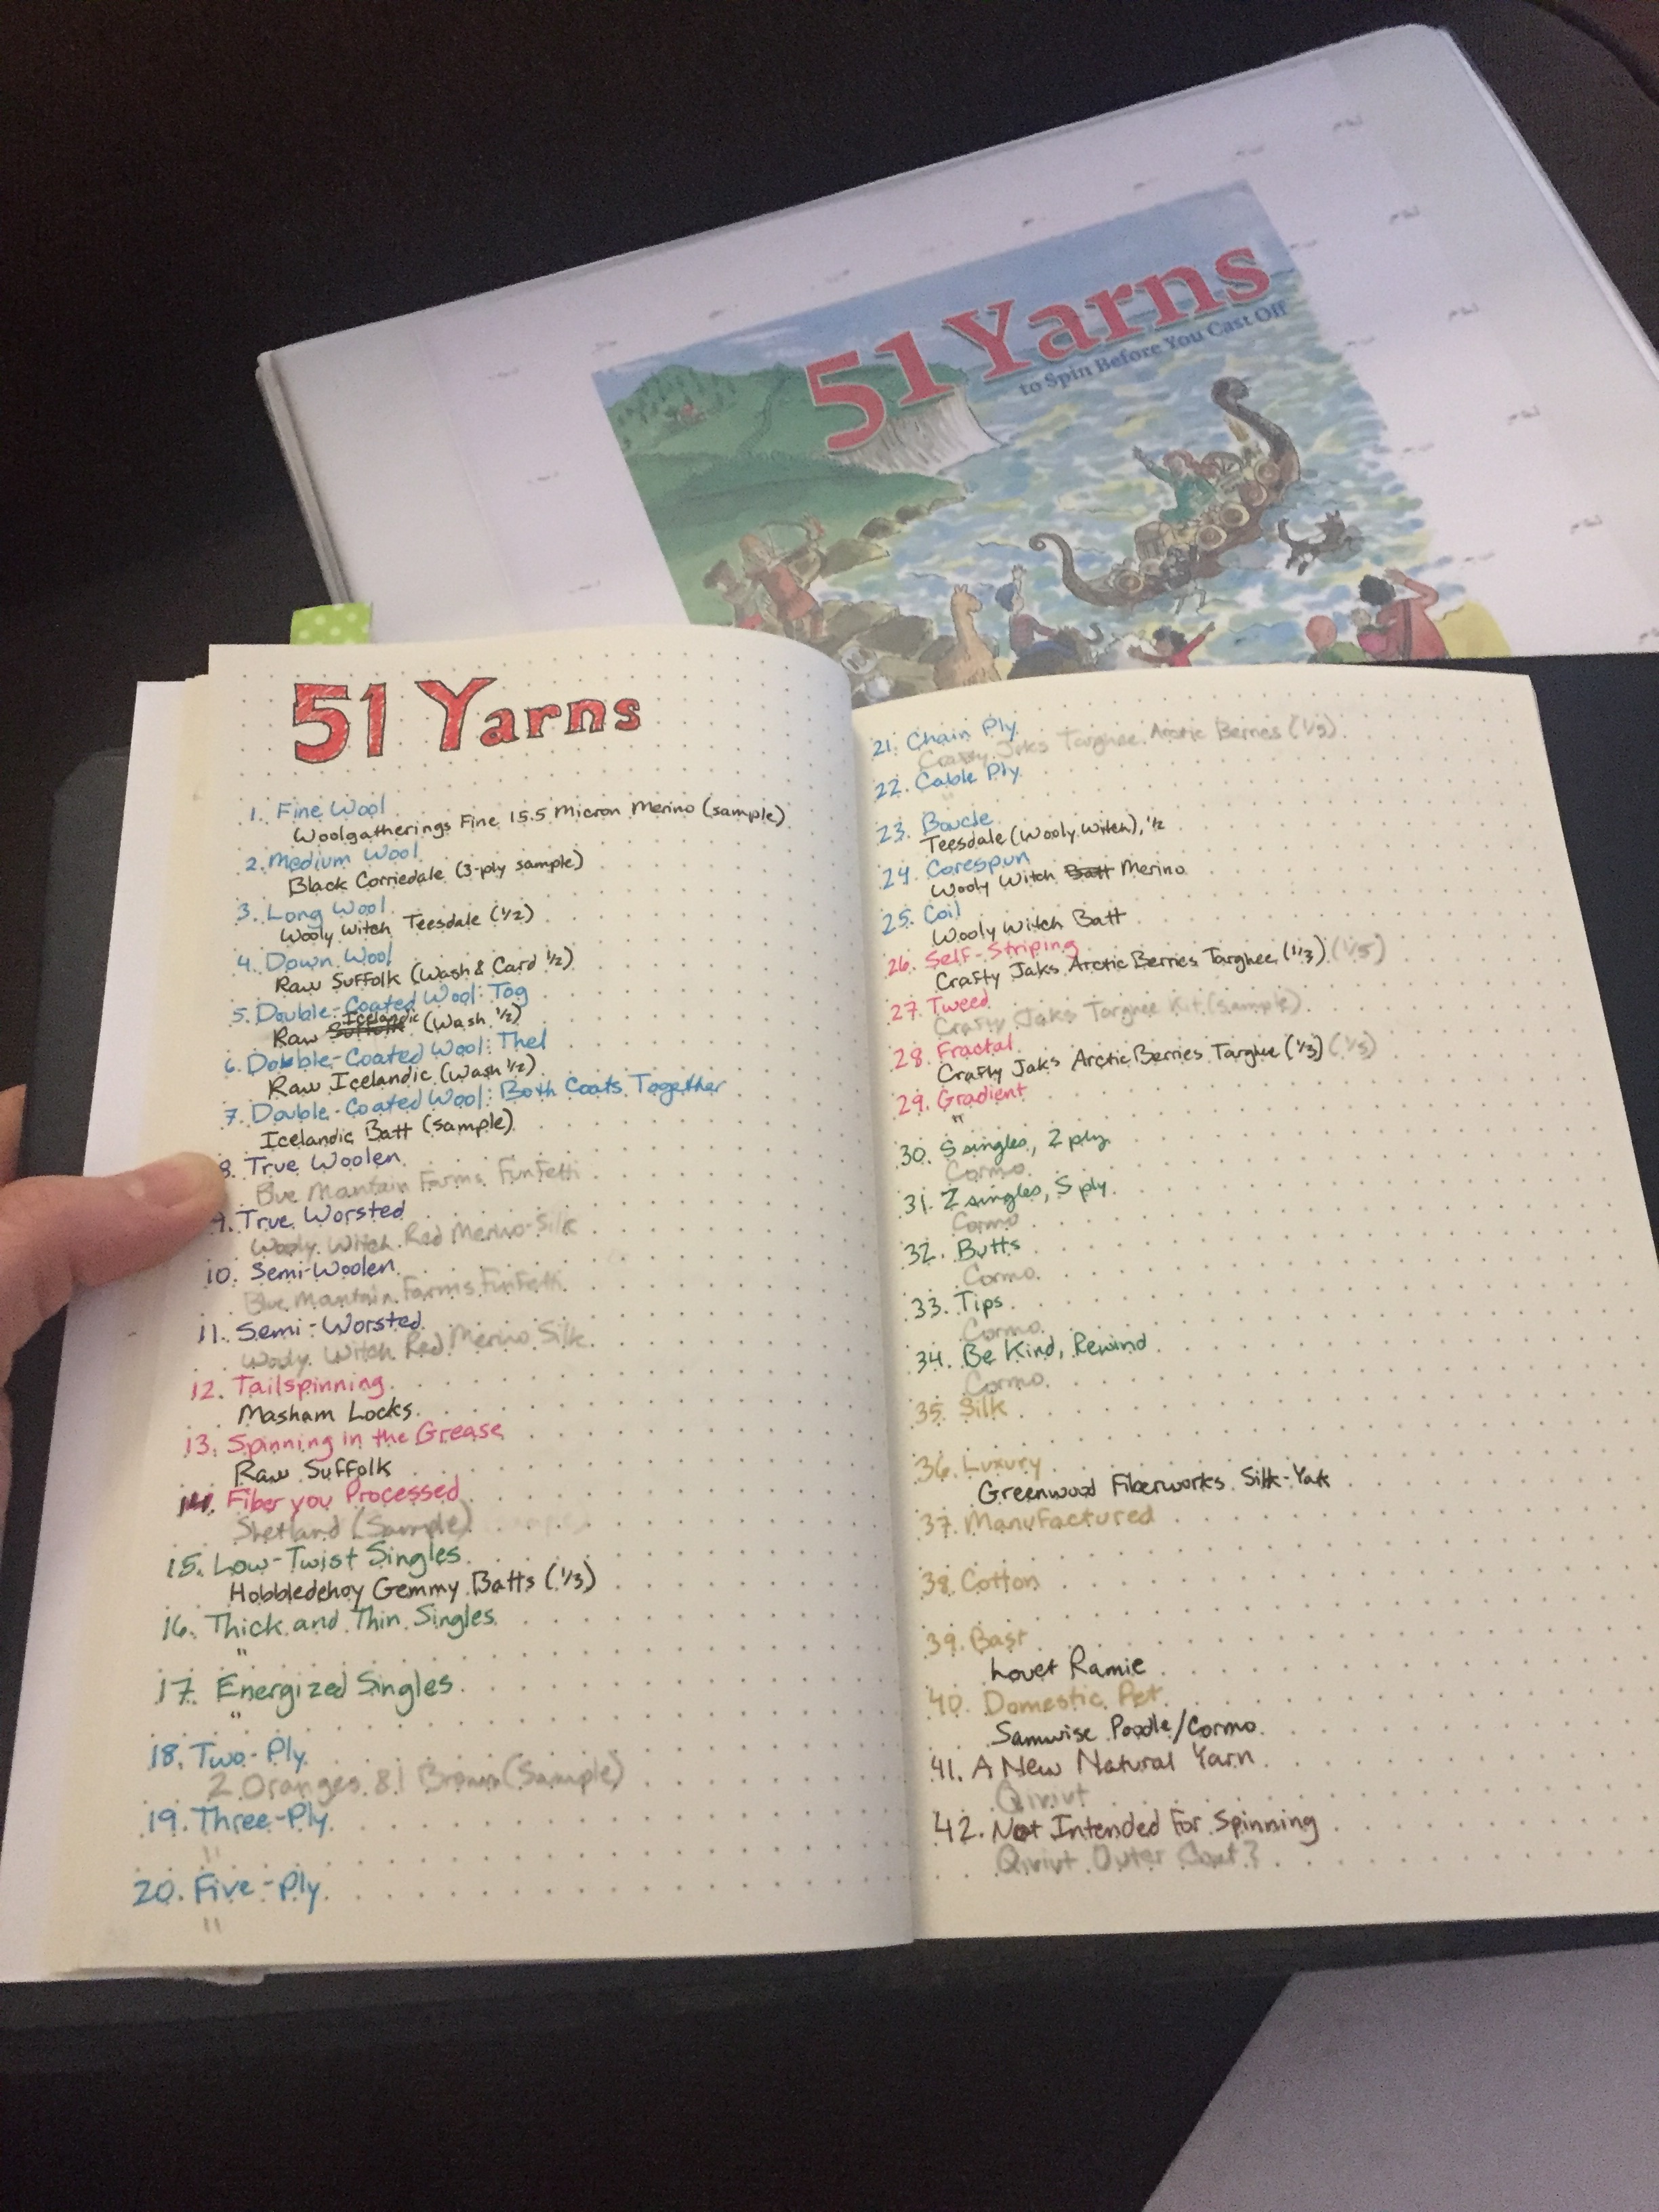 51 Yarns
to Spin Before You Cast Off
51 Yarns
1. Fine Wool
Woolgatherings Fine 15.5 Micron Merino (sample)
2. Medium Wool
Black Corriedale (3-ply sample)
3. Long Wool
Wooly Witch Teesdale (1/2)
4. Down Wool
Raw Suffolk (Wash & Card 1/2)
5. Double-Coated Wool: Tog
Raw Suffolk Icelandic (Wash 1/2)
6. Double-Coated Wool: Thel
Raw Icelandic (Wash 1/2)
7. Double-Coated Wool: Both Coats Together
Icelandic Batt (sample)
8. True Woolen
Blue Mantain Farms Funfetti
9. True Worsted
Wooly Witch Red Merino-Silk
10. Semi-Woolen
Blue Mantain Farms Funfetti
11. Semi-Worsted
Wooly Witch Red Merino Silk
12. Tailspinning
Masham Locks
13. Spinning in the Grease
Raw Suffolk
14. Fiber you Processed
Shetland (Sample)
15. Low-Twist Singles
Hobbledehoy Gemmy Batts (1/3)
16. Thick and Thin Singles
"
17. Energized Singles
"
18. Two-Ply
2 Oranges & 1 Brown (Sample)
19. Three-Ply
"
20. Five-Ply
"
21. Chain Ply
Crafty Jaks Targhee Arctic Berries (1/5)
22. Cable Ply
"
23. Boucle
Teesdale (Wooly Witch), 1/2
24. Corespun
Wooly Witch Batt Merino
25. Coil
Wooly Witch Batt
26. Self-Striping
Crafty Jaks Arctic Berries Targhee (1/3) (1/5)
27. Tweed
Crafty Jaks Targhee Kit (sample)
28. Fractal
Crafty Jaks Arctic Berries Targhee (1/3) (1/5)
29. Gradient
"
30. S singles, Z ply
Cormo
31. Z singles, S ply
Cormo
32. Butts
Cormo
33. Tips
Cormo
34. Be Kind, Rewind
Cormo
35. Silk
36. Luxury
Greenwood Fiberworks Silk-Yak
37. Manufactured
38. Cotton
39. Bast
Louet Ramie
40. Domestic Pet
Samwise Poodle/Cormo
41. A New Natural Yarn
Qiviut
42. Not Intended For Spinning
Qiviut Outer Coat?